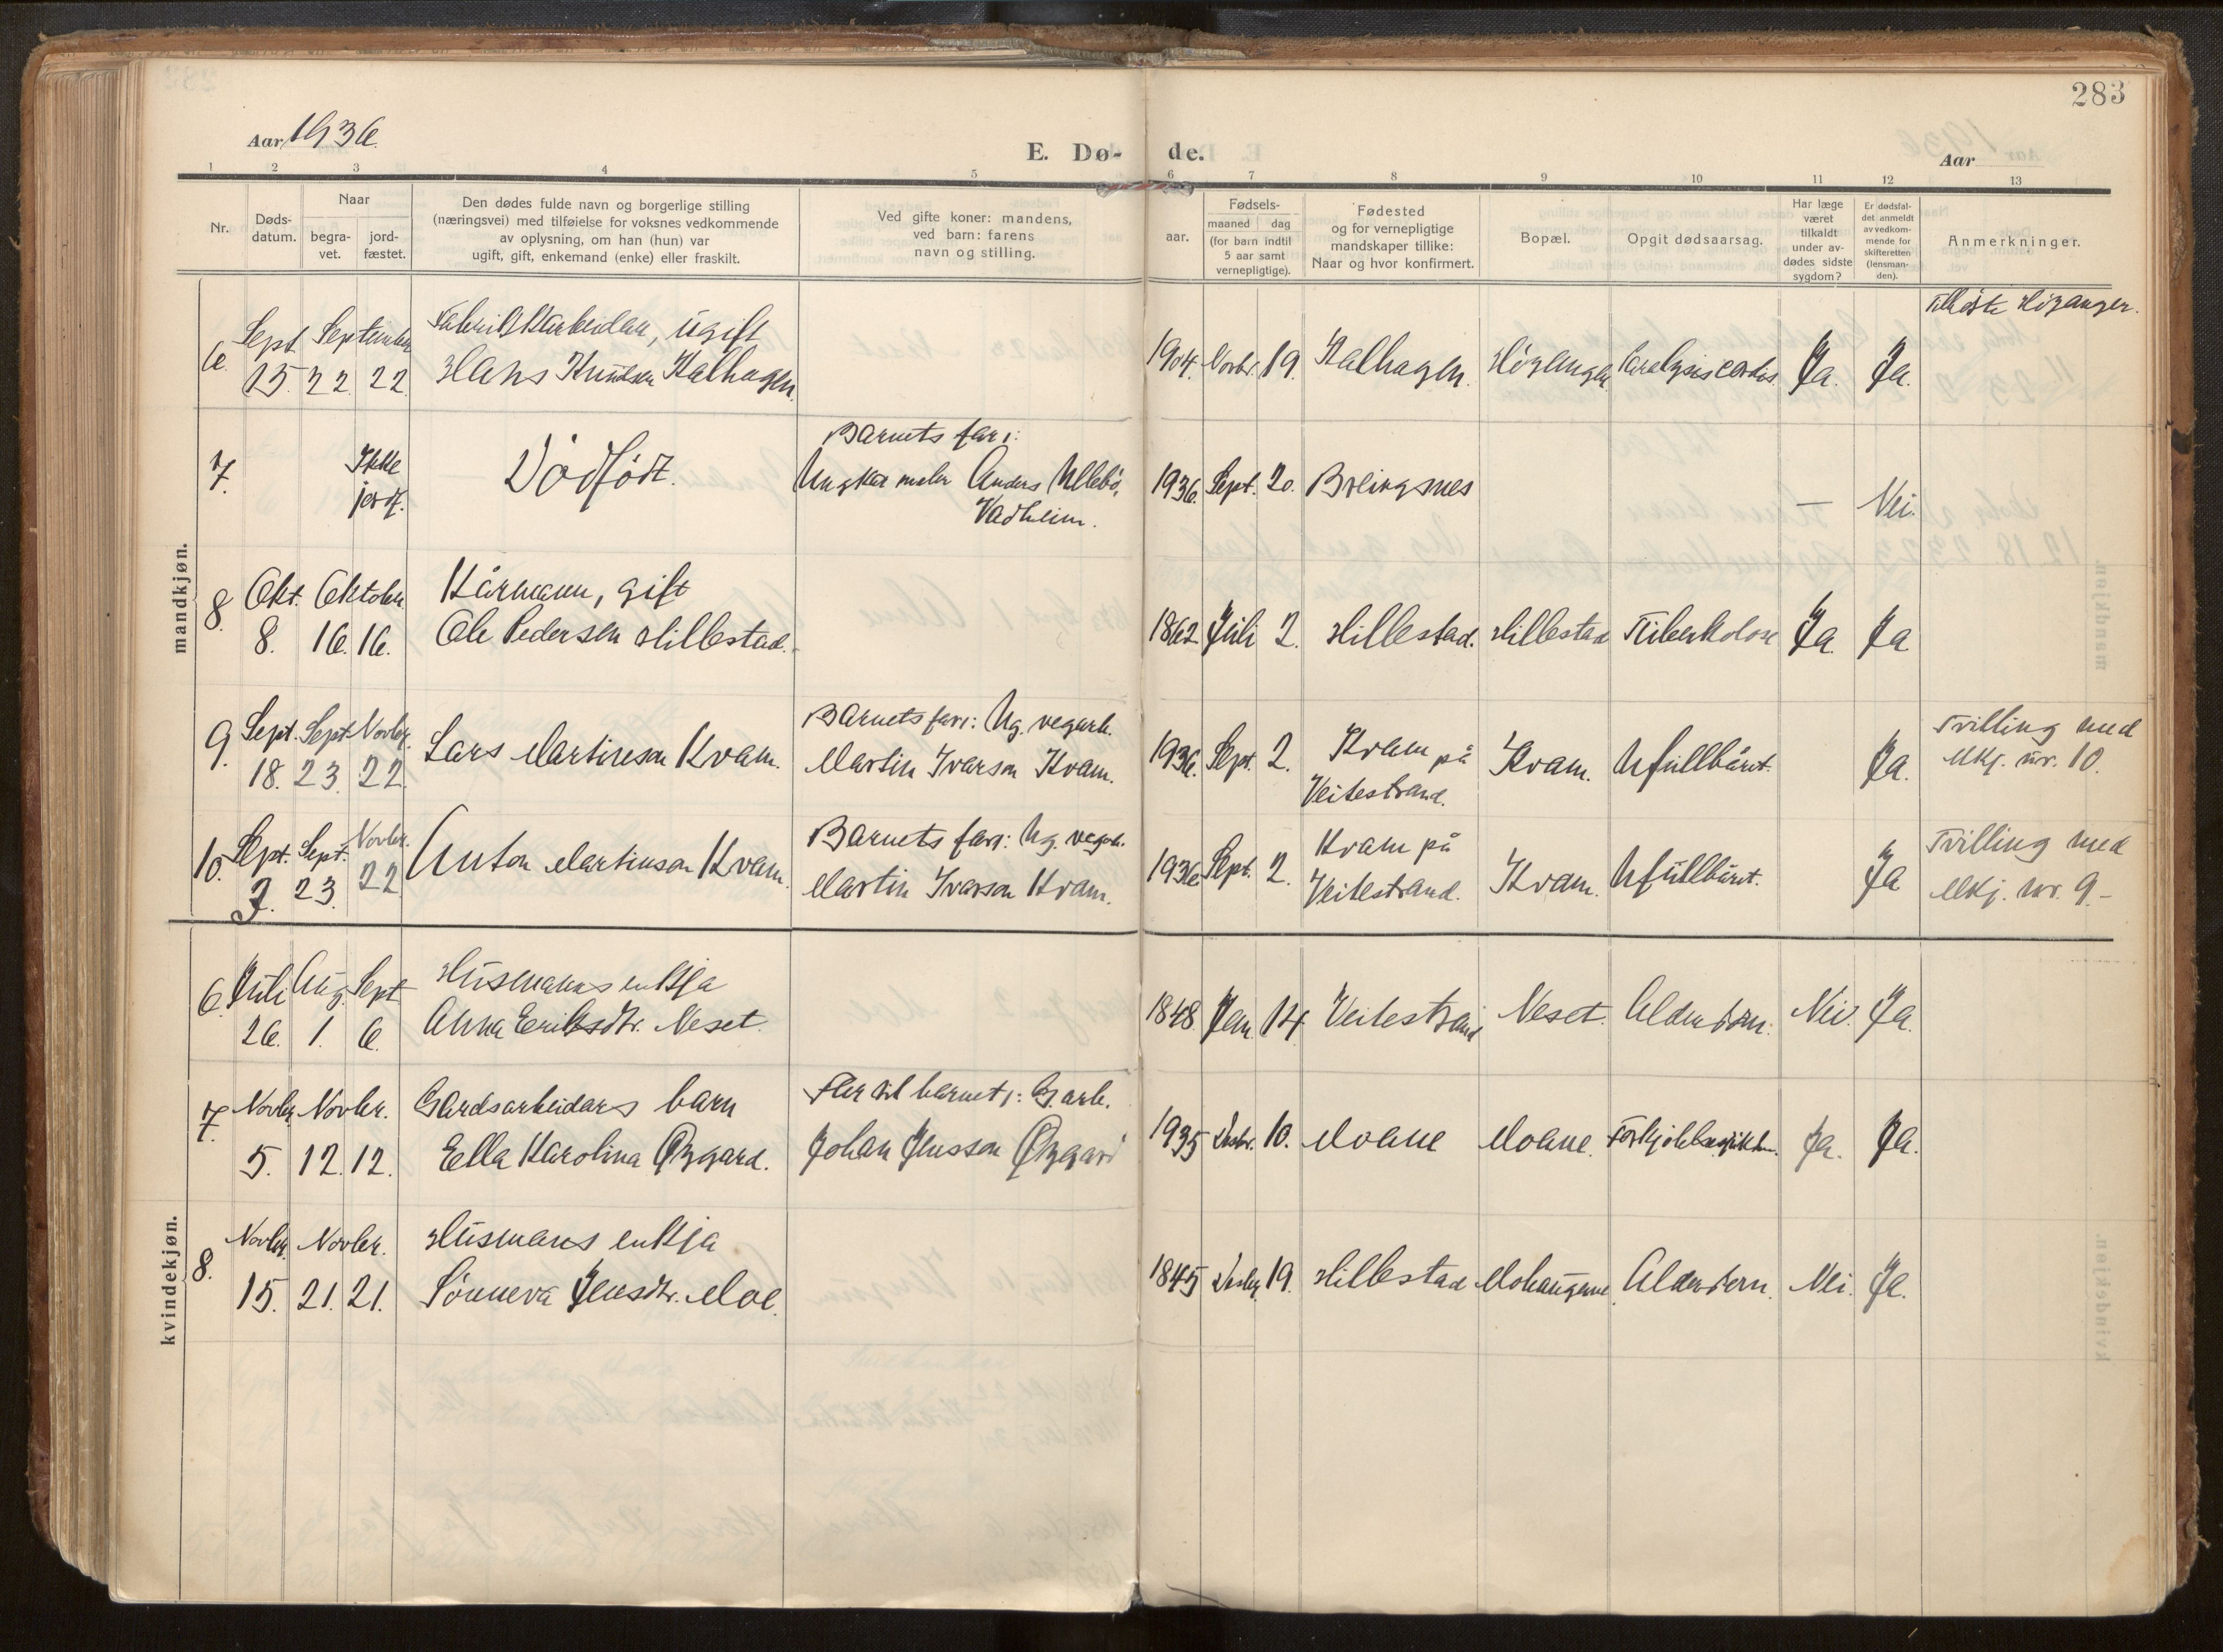 283
Aar 1936.
E. Dø- de.
Aar
1 2 3 4 5 6 7 8 9 10 11 12 13
Nr.
Døds-
datum.
Naar
begra-
vet.
jord-
fæstet.
Den dødes fulde navn og borgerlige stilling
(næringsvei) med tilføielse for voksnes vedkommende
av oplysning, om han (hun) var
ugift, gift, enkemand (enke) eller fraskilt.
Ved gifte koner: mandens,
ved barn: farens
navn og stilling.
aar.
Fødsels-
maaned dag
(for barn indtil
5 aar samt
vernepligtige).
Fødested
og for vernepligtige
mandskaper tillike:
Naar og hvor konfirmert.
Bopæl.
Opgit dødsaarsag.
Har læge
været
tilkaldt
under av-
dødes sidste
sygdom?
Er dødsfal-
det anmeldt
av vedkom-
mende for
skifteretten
(lensman-
den).
Anmerkninger.
mandkjøn.
Sept. September Fabrikkarbeidar, ugift Høyanger.
6. 15. 22. 22. Hans Knudsen Kalhagen. 1904. Novbr. 19. Kalhagen. Høyanger Paralysis cordis. Ja. Ja.
Barnets far:
7. Ikke Dødfødt. Ungkar maler Anders Ullebø, 1936. Sept. 20. Breingsnes — Nei.
jordf. Vadheim.
8. Okt. Oktober Kårmann, gift
8. 16. 16. Ole Pedersen Hillestad. 1862 Juli 2. Hillestad. Hillestad Tuberkolose Ja. Ja
9. Sept. Sept. Novbr. Barnets far: Ug. vegarb. Tvilling med
18. 23. 22. Lars Martinson Kvam. Martin Ivarson Kvam. 1936. Sept. 2. Kvam på Kvam. Ufullbåret. Ja. Mkj. nr. 10.
Veitestrand.
10. Sept. Sept. Novbr. Barnets far: Ug. vegarb. Kvam på Tvilling med
3. 23. 22. Anton Martinson Kvam. Martin Ivarson Kvam. 1936 Sept. 2. Veitestrand. Kvam. Ufullbåret. Ja Mkj. nr. 9.-
kvindekjøn.
6. Juli Aug. Sept Husmanns enkja
26. 1. 6. Anna Eriksdtr. Neset. 1848. Jan. 14. Veitestrand Neset. Alderdom. Nei. Ja.
7. Novbr. Novbr. Gardsarbeidars barn Far til barnet: G.arb.
5. 12. 12. Ella Karolina Øygard. Johan Jensson Øygard 1935 Desbr. 10. Moane Moane. Ja. Ja.
8. Novbr. Novbr. Husmans enkja
15. 21. 21. Sønneva Jensdtr. Moe. 1845 Desbr. 19. Hillestad Mohaugane Alderdom. Nei. Ja.